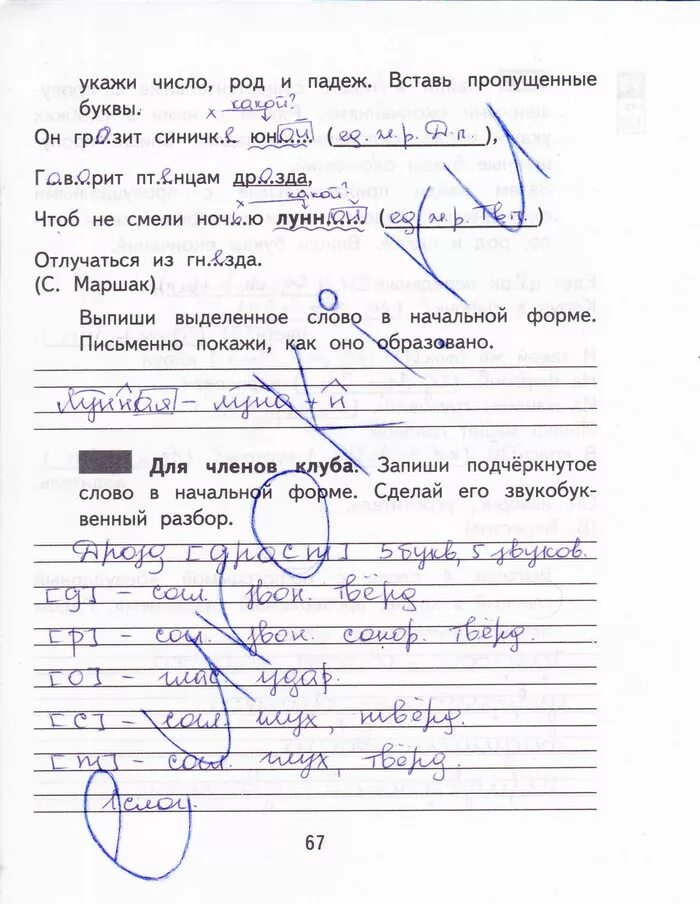 укажи число, род и падеж. Вставь пропущенные
буквы.
х какой?
Он грозит синичке юной (ед.ж.р. Д.п.),
Говорит птенцам дрозда,
х какой?
Чтоб не смели ночью лунной (ед.ж.р. Тв.п.)
Отлучаться из гнезда.
(С. Маршак)
Выпиши выделенное слово в начальной форме.
Письменно покажи, как оно образовано.
Лунная – луна + н
Для членов клуба. Запиши подчёркнутое
слово в начальной форме. Сделай его звукобук-
венный разбор.
Дрозд [дрост] 5 букв, 5 звуков.
[д] – согл. звон. твёрд
[р] – сог. звон. сонор. твёрд.
[о] – глас удар.
[с] – согл. глух, твёрд.
[т] – согл. глух, твёрд.
1 слог.
67